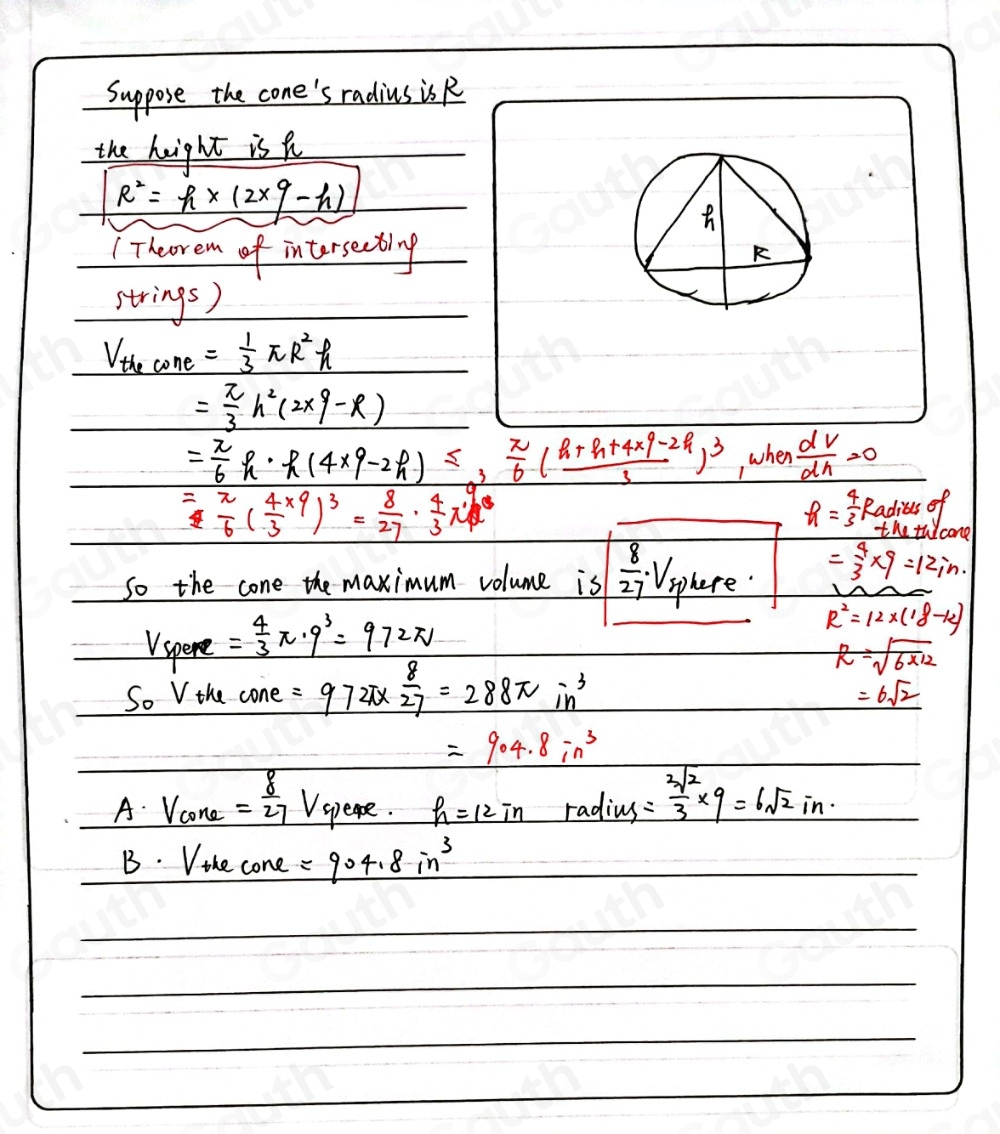 Suppose the cone's radius is R
the height is h
R² = h × (2×9-h)
(Theorem of intersecting
strings)
h
R
V the cone = 1/3 πR²h
= π/3 h²(2×9-h)
= π/6 h·h(4×9-2h) ≤ π/6 ((h+h+4×9-2h)/3)³, when dv/dh =0
= π/6 (4/3×9)³ = 8/27 · 4/3 π·9³
h = 4/3 Radius of
the cone
= 4/3×9 =12in.
So the cone the maximum volume is 8/27·Vsphere.
R²=12×(18-12)
V spere = 4/3 π·9³= 972π
R = √6×12
= 6√2
So V the cone = 972π× 8/27 = 288π in³
= 904.8 in³
A. Vcone = 8/27 V spere. h=12 in radius= 2√2/3 ×9 = 6√2 in.
B. V the cone = 904.8 in³
Gauth